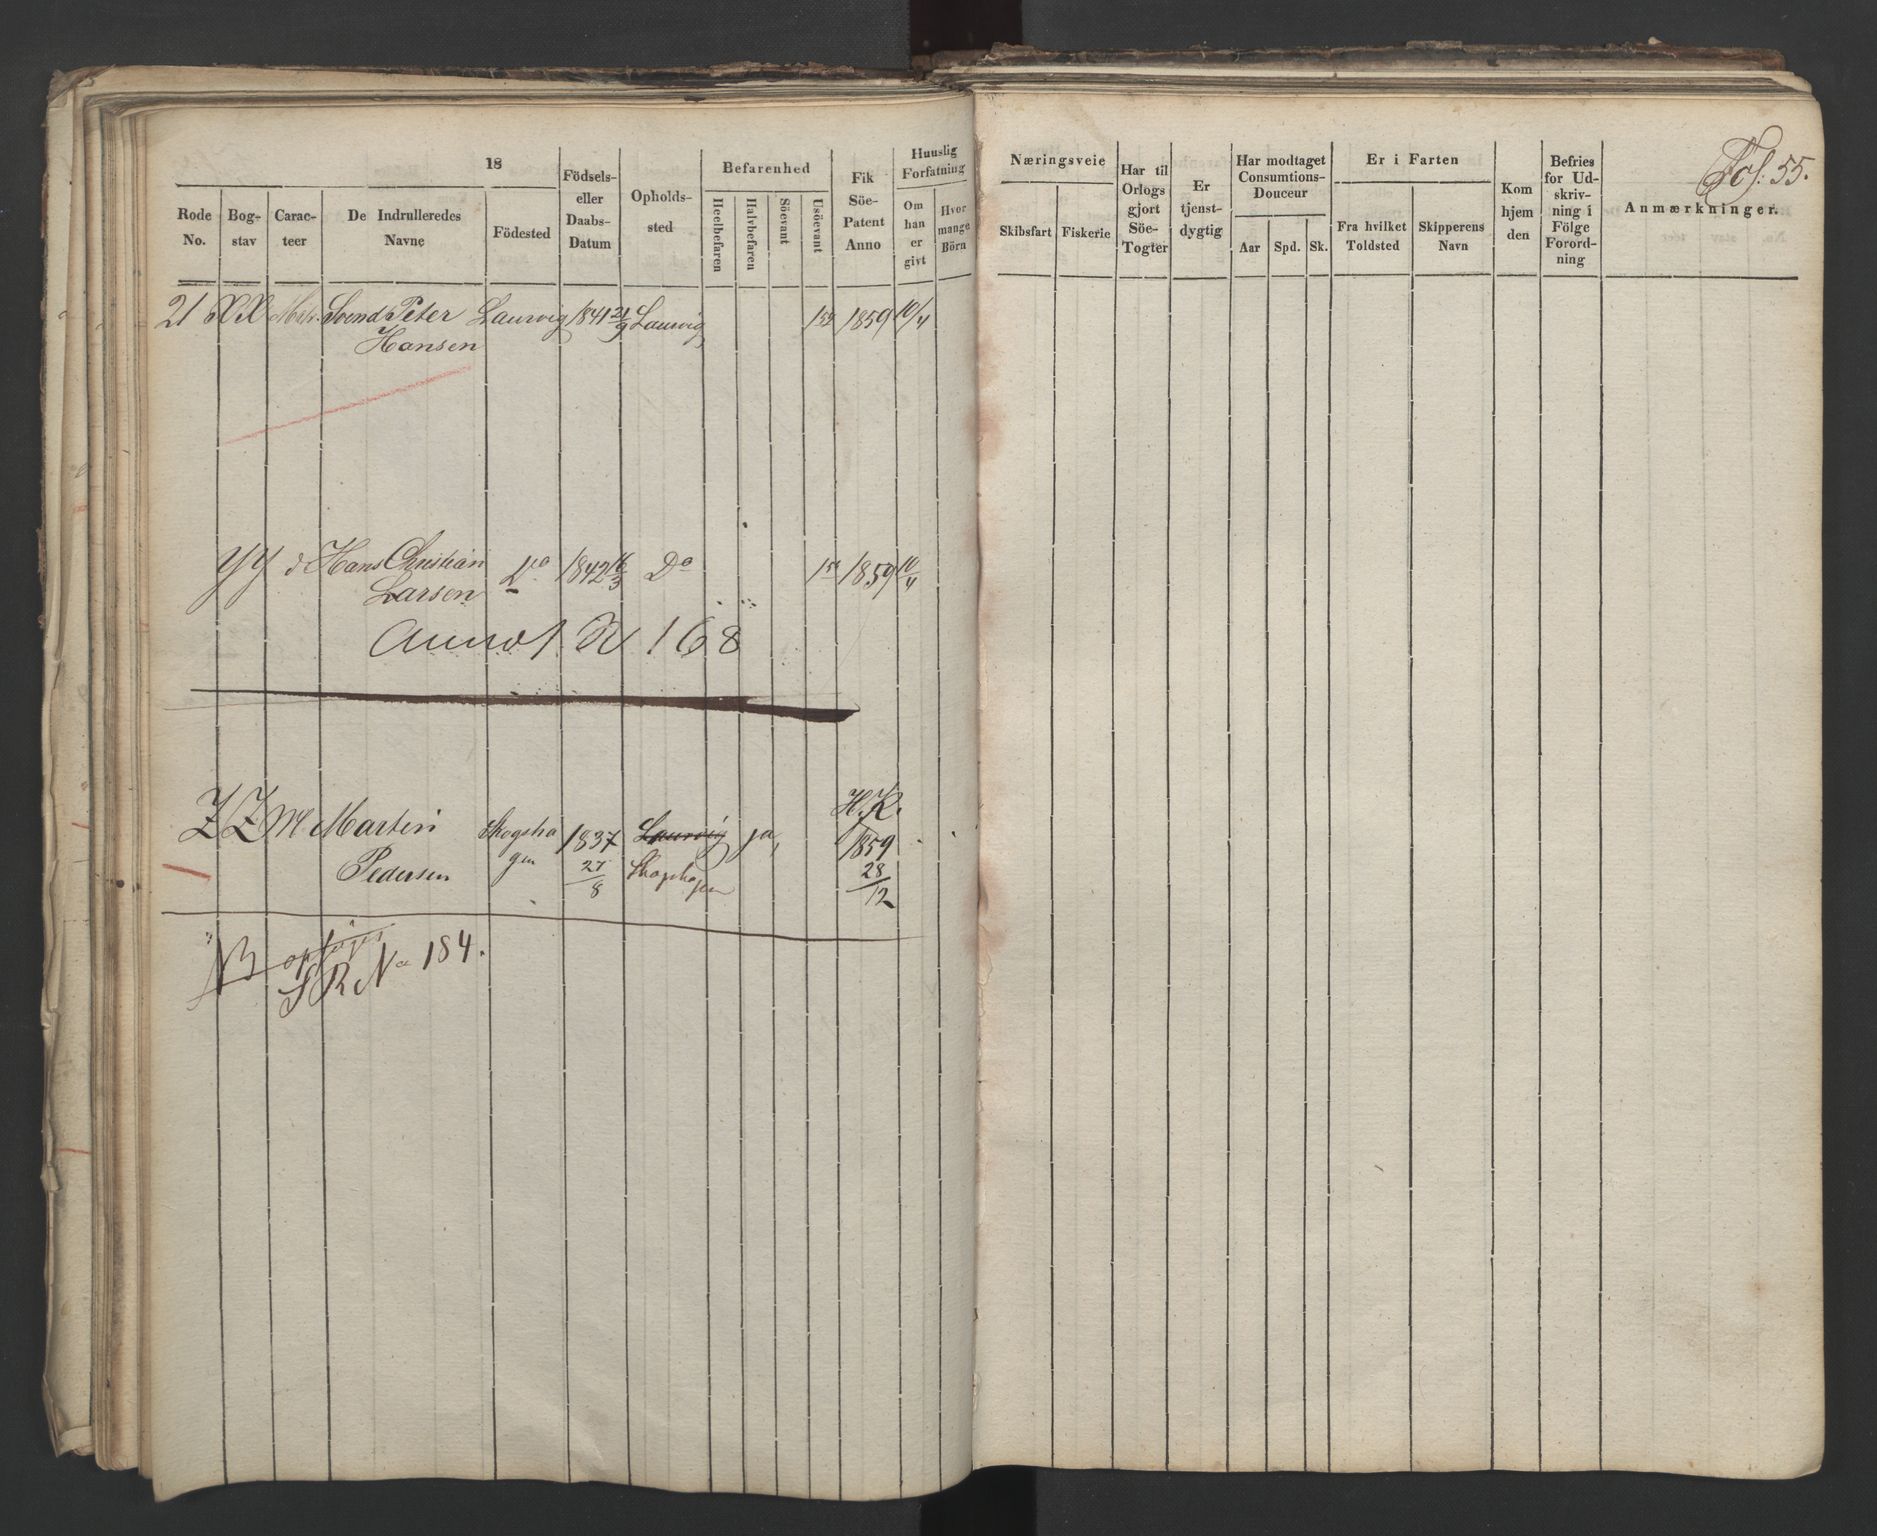 18
Rode No.
Bog- stav
Carac- teer
De Indrulleredes Navne
Födested
Födsels- eller Daabs- Datum
Opholds- sted
Befarenhed
Heelbefaren
Halvbefaren
Söevant
Usöevant
Fik Söe- Patent Anno
Huuslig Forfatning
Om han er givt
Hvor mange Börn
21 XX Svend Peter Laurvig 1841 21/9 Laurvig 1859 10/4
Hansen
YY Hans Christian Do 1842 Do 1859 10/4
Larsen
Annot N 168
H.K.
ZZ Martin 1837 Laurvig ja, 1859
Pedersen 27/8 28/12
NB
SR No 184.
Fol. 55.
Næringsveie
Skibsfart
Fiskerie
Har til Orlogs gjort Söe- Togter
Er tjenst- dygtig
Har modtaget Consumtions- Douceur
Aar
Spd.
Sk.
Er i Farten
Fra hvilket Toldsted
Skipperens Navn
Kom hjem den
Befries for Ud- skriv- ning i Fölge Forord- ning
Anmærkninger.